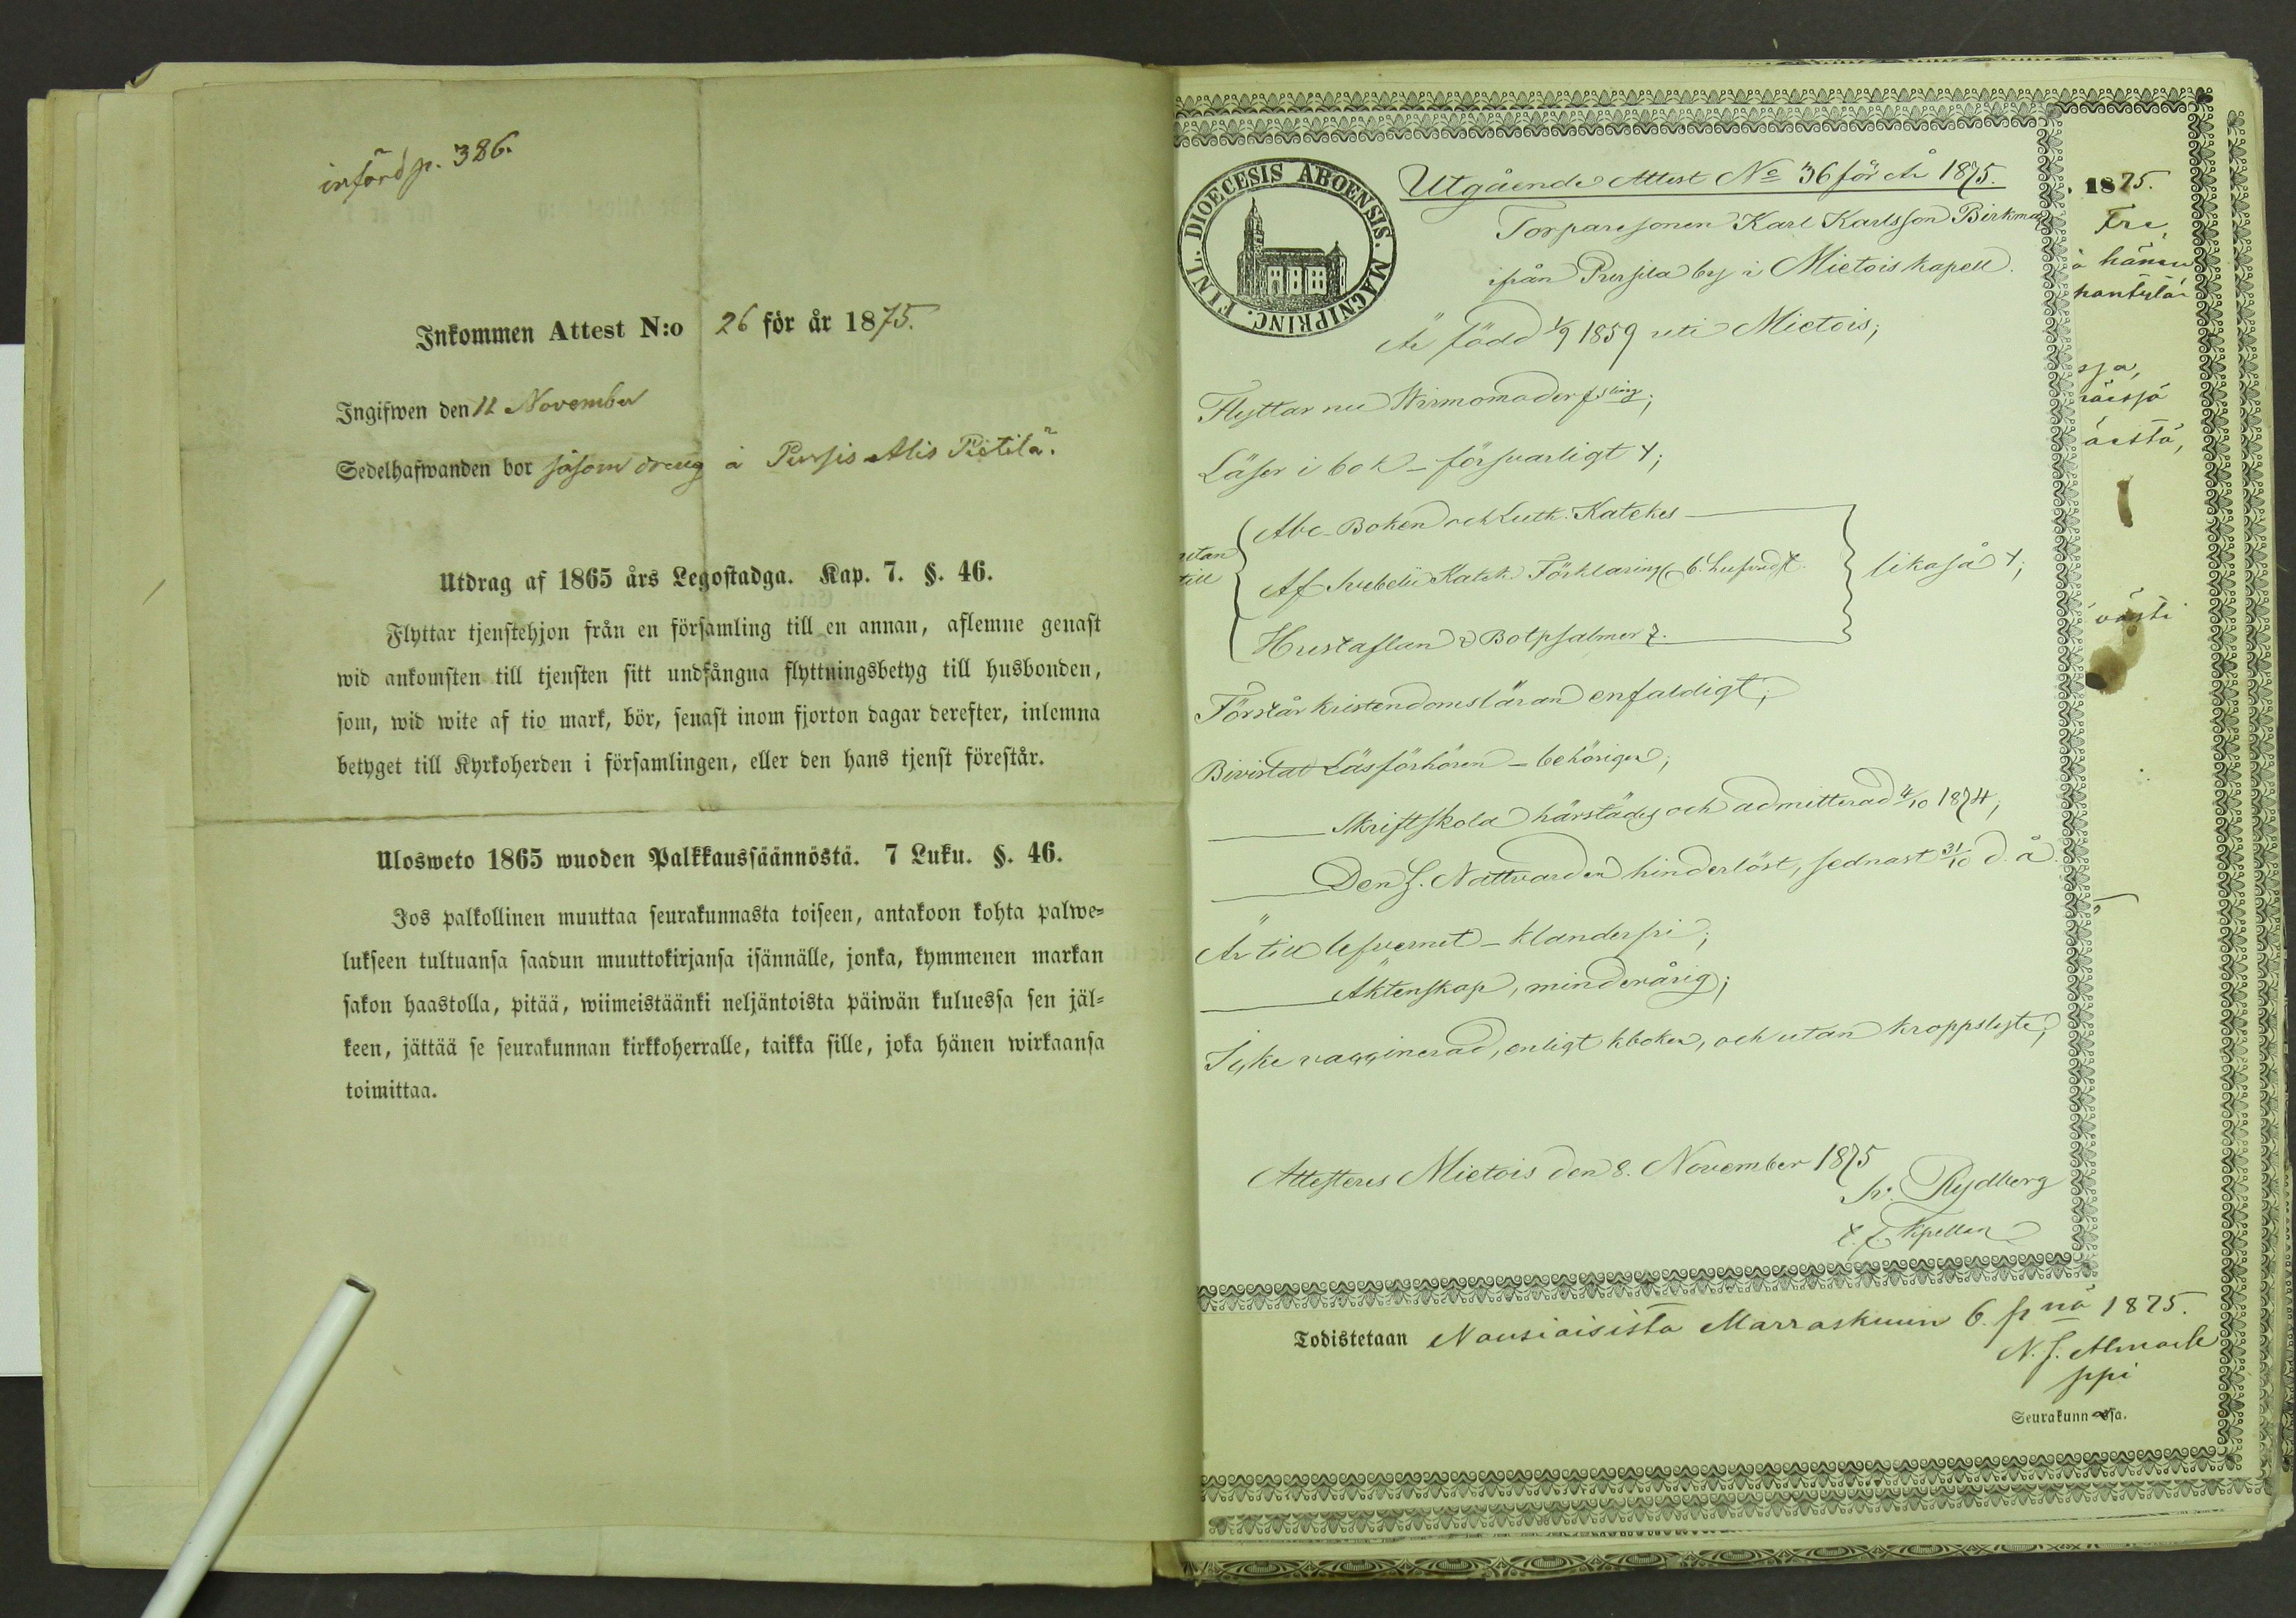 införd p. 386.
Inkommen Attest N:o 26 för år 1875.
Ingifwen den 11 November
Sedelhafwanden bor såsom dreng å Pursis Alis Pietilä.
Utdrag af 1865 års Legostadga. Kap. 7. §. 46.
Flyttar tjenstehjon från en församling till en annan, aflemne genast
wid ankomsten till tjensten sitt undfångna flyttningsbetyg till husbonden,
som, wid wite af tio mark, bör, senast inom fjorton dagar derefter, inlemna
betyget till Kyrkoherden i församlingen, eller den hans tjenst förestår.
Ulosweto 1865 wuoden Palkkaussäännöstä. 7 Luku. §. 46.
Jos palkollinen muuttaa seurakunnasta toiseen, antakoon kohta palwe=
lukseen tultuansa saadun muuttokirjansa isännälle, jonka, kymmenen markan
sakon haastolla, pitää, wiimeistäänki neljäntoista päiwän kuluessa sen jäl=
keen, jättää se seurakunnan kirkkoherralle, taikka sille, joka hänen wirkaansa
toimittaa.
DIOECESIS ABOENSIS. MAGNI PRINC. FINL.
Utgående Attest No 36 för År 1875.
Torparesonen Karl Karlsson Birkman
ifrån Pursila by i Mietois kapell.
Är född 1/9 1859 uti Mietois;
Flyttar nu Wirmo moderfsling;
Läser i bok – försvarligt +;
utan
till
Abc-Boken och Luth. Katekes
Af Svebelii Katek. Förklaring 6. hufvudst.
likaså +;
Hustaflan & Botpsalmer 7.
Förstår kristendomsläran enfaldigt;
Bivistat Läsförhören – behörigen;
Skriftskola härstädes och admitterad 4/10 1874;
Den H. Nattvarden hinderlöst, sednast 31/10 d. å.
Är till lefvernet – klanderfri;
Äktenskap, minderårig;
Icke vaccinerad, enligt kboken, och utan kroppslyte;
Attesteres Mietois den 8. November 1875
Rydberg
Kpellan
1875.
hänen
Todistetaan Nousiaisista Marraskuun 6. p nä 1875.
Seurakunn ssa.